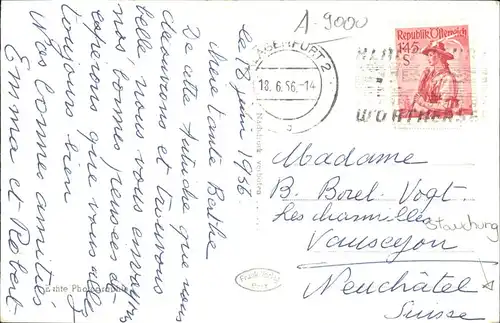 A-9000
Le 18 juin 1956
Chère tante Berthe
De cette Autriche que nous
découvrons et trouvons
belle, nous vous envoyons
nos bonnes pensées et
espérons que vous allez
toujours bien.
Nos bonnes amitiés
Emma et Robert
KLAGENFURT 2
18.6.56.-14
Republik Österreich
1S45
WÖRTHERSEE
Madame
B. Borel-Vogt.
Les charmilles
Vauseyon
Neuchâtel
Suisse
Echte Photographie
Nachdruck verboten